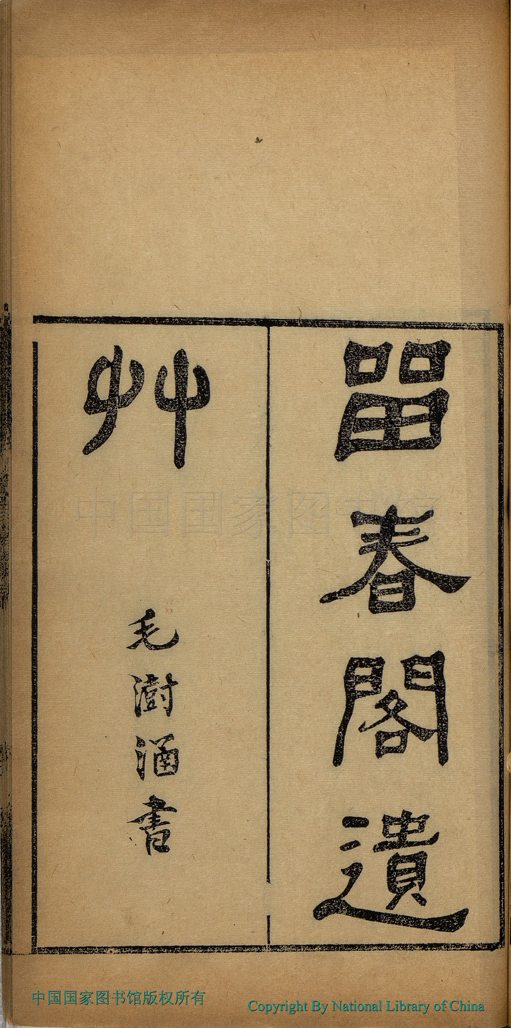 㽞春閣遺
艸
毛澍書
中国国家图书馆
中国国家图书馆版权所有
Copyright By National Library of China